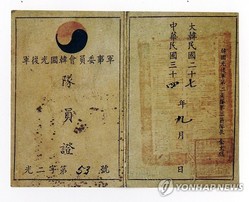 軍事委員會韓國光復軍
隊員證
光二字第53號
大韓民國二十七
中華民國三十四
年九月 日
YONHAPNEWS